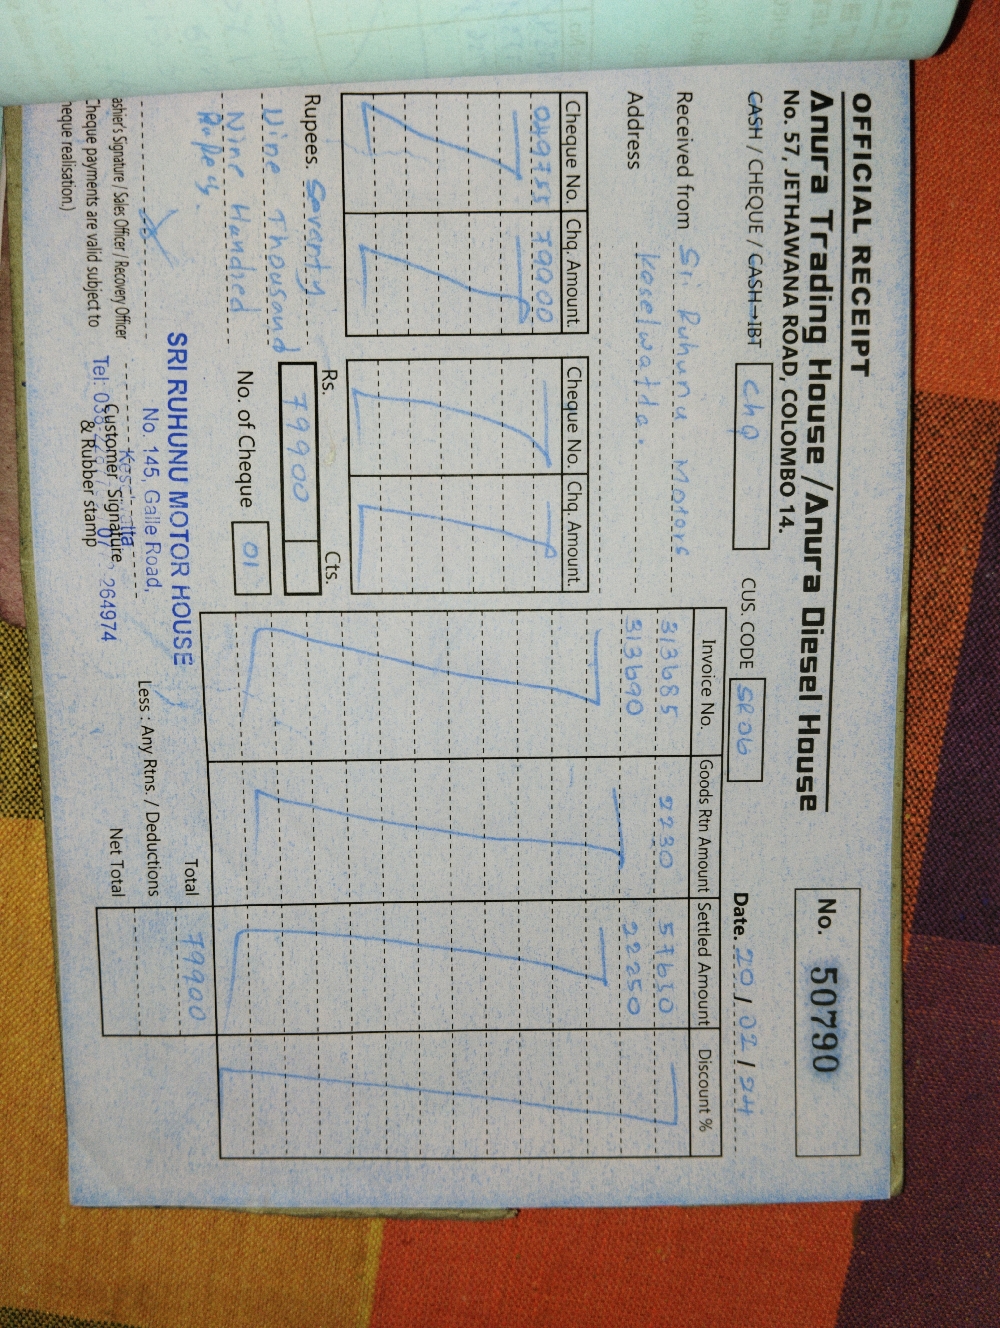 OFFICIAL RECEIPT
Anura Trading House / Anura Diesel House
No. 57, JETHAWANA ROAD, COLOMBO 14.
No. 50790
CASH / CHEQUE / CASH→IBT chq
CUS. CODE SR06
Date. 20 / 02 / 24
Received from Sri Ruhunu Motors
Address Koselwatta.
Cheque No. Chq. Amount. Cheque No. Chq. Amount.
049755 79900
Rupees. Seventy
Nine Thousand
Nine Hundred
Rupees.
Rs. Cts.
79900
No. of Cheque 01
Invoice No. Goods Rtn Amount Settled Amount Discount %
313685 2230 57650
313690 22250
Total 79900
Less : Any Rtns. / Deductions
Net Total
SRI RUHUNU MOTOR HOUSE
No. 145, Galle Road,
Tel: 264974
ashier's Signature / Sales Officer / Recovery Officer
Customer Signature
& Rubber stamp
Cheque payments are valid subject to
heque realisation.)